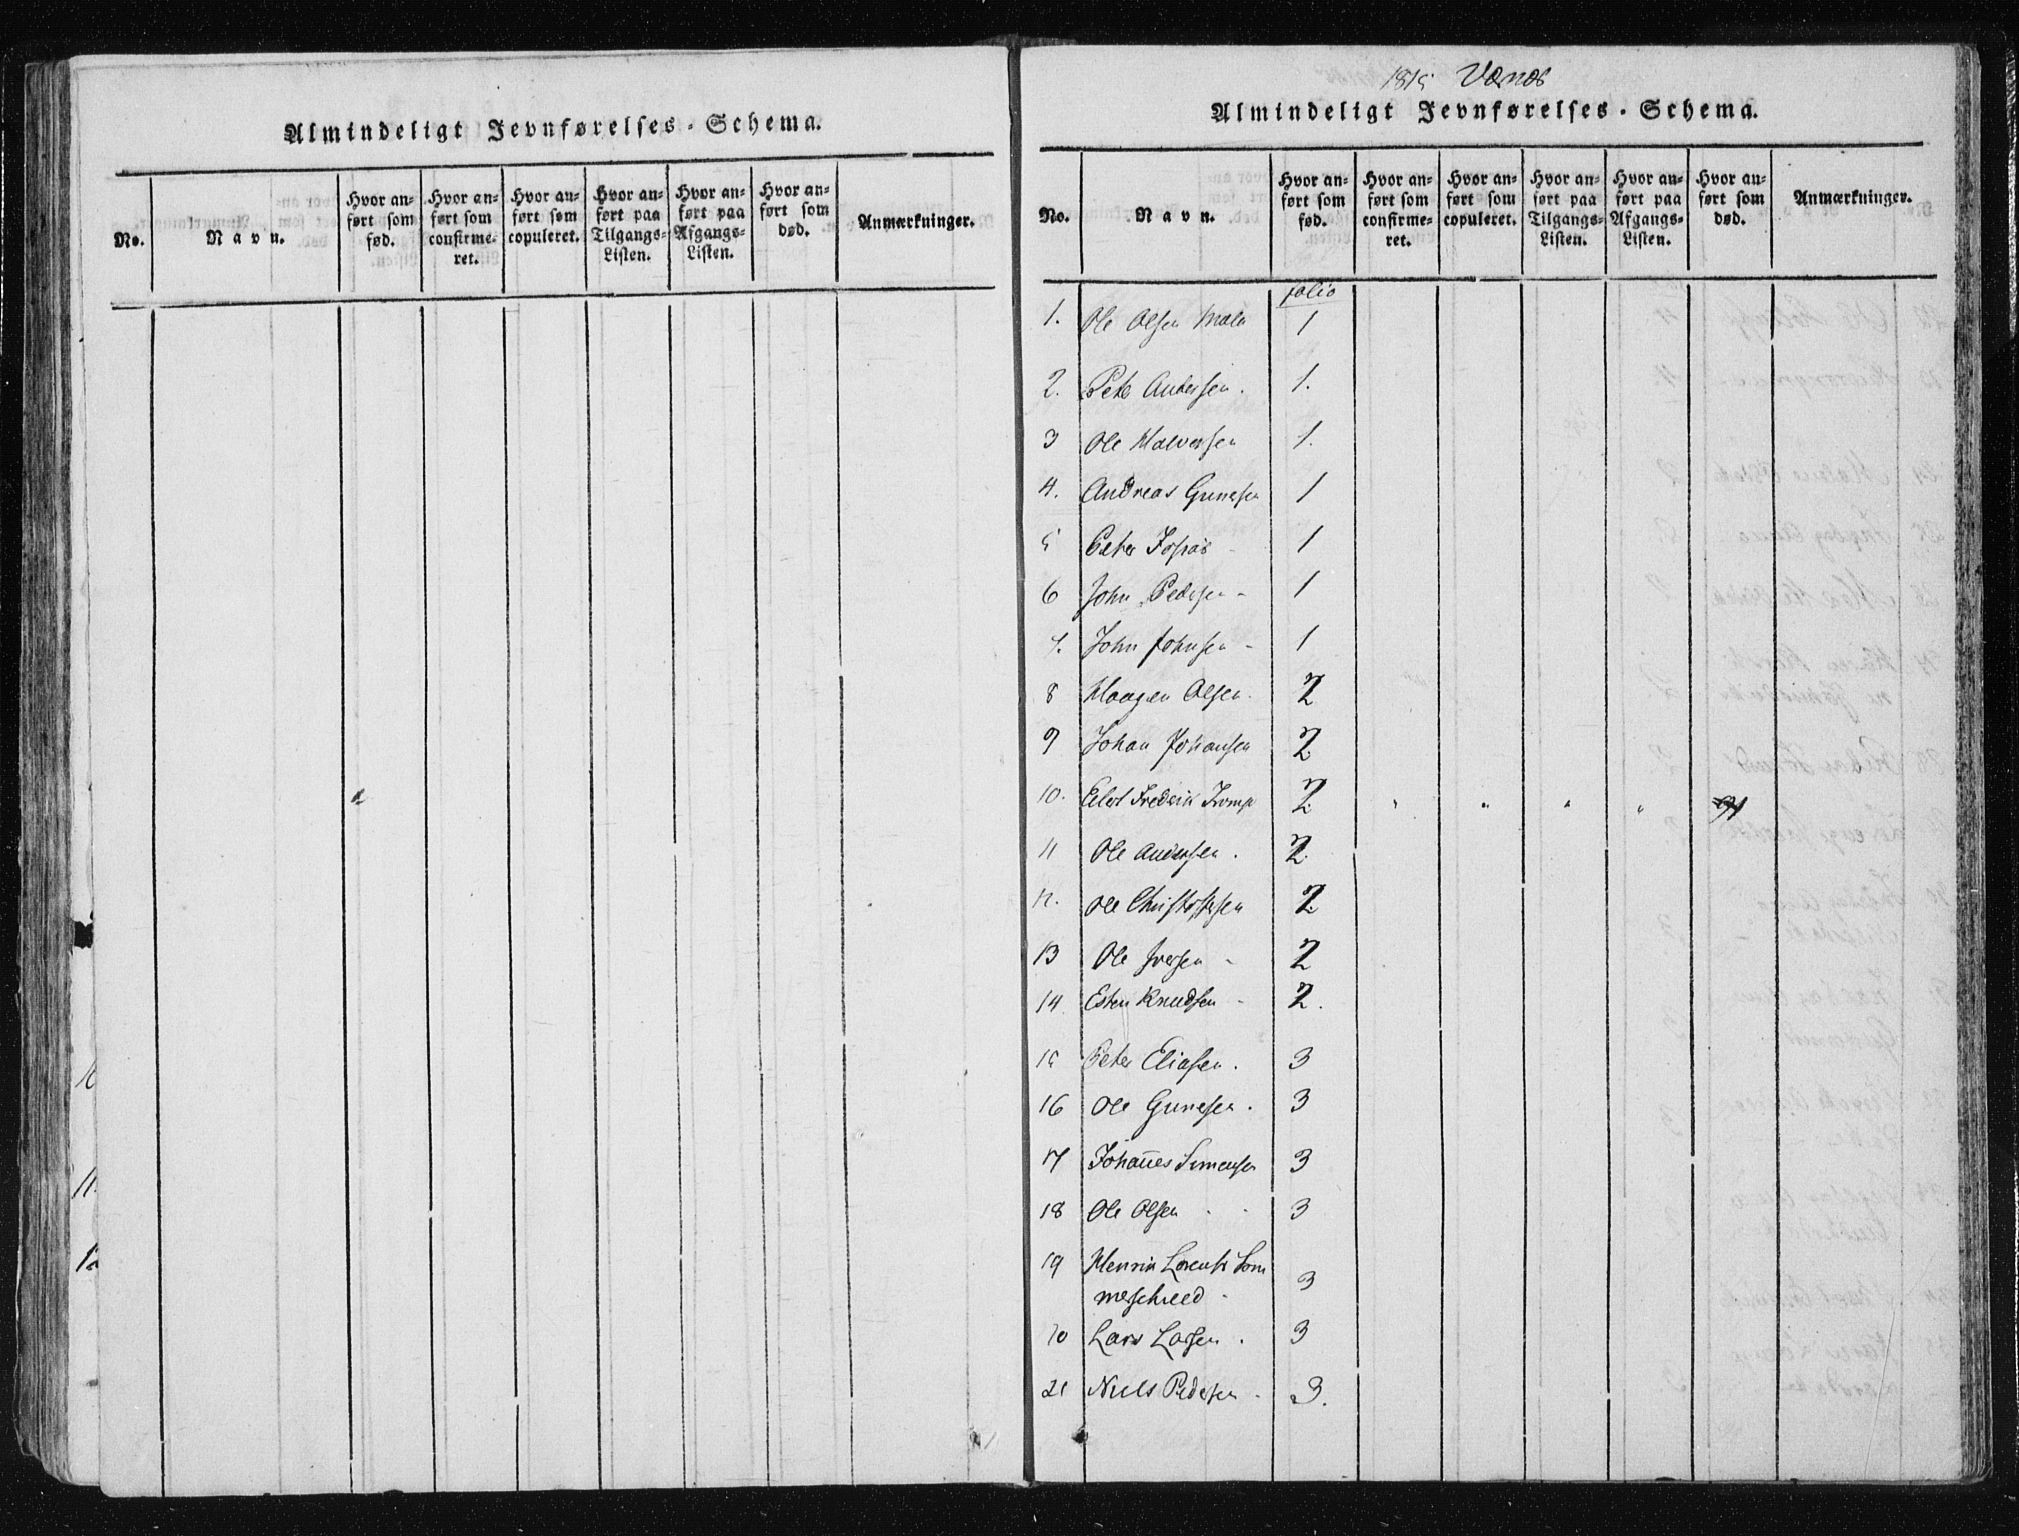 Almindeligt Jevnførelses-Schema.
No.
Navn.
Hvor anført som fød.
Hvor anført som confirmeret.
Hvor anført som copuleret.
Hvor anført paa Tilgangs-Listen.
Hvor anført paa Afgangs-Listen.
Hvor anført som død.
Anmærkninger.
1815 Værnes
Almindeligt Jevnførelses-Schema.
No.
Navn.
Hvor anført som fød.
Hvor anført som confirmeret.
Hvor anført som copuleret.
Hvor anført paa Tilgangs-Listen.
Hvor anført paa Afgangs-Listen.
Hvor anført som død.
Anmærkninger.
folio
1. Ole Olsen 1
2. Peter Andersen. 1.
3 Ole Halvorsen 1.
4. Andreas Gunersen 1
5 Peter 1
6 John Pedersen - 1
7. John Johnsen - 1
8 Haagen Olsen. 2
9 Johan Johansen 2
10. Eilert Frederik 2 " " " "
11 Ole Andersen. 2.
12. Ole Christophersen 2
13 Ole Iversen - 2
14 Esten Knudsen - 2.
15 Peter Eliasen. 3
16 Ole Gunersen. 3
17 Johañes Simensen 3
18 Ole Olsen 3
19 Henrik Lorentz Som
merschield - 3
20 Lars Larsen. 3
21 Niels Pedersen - 3.